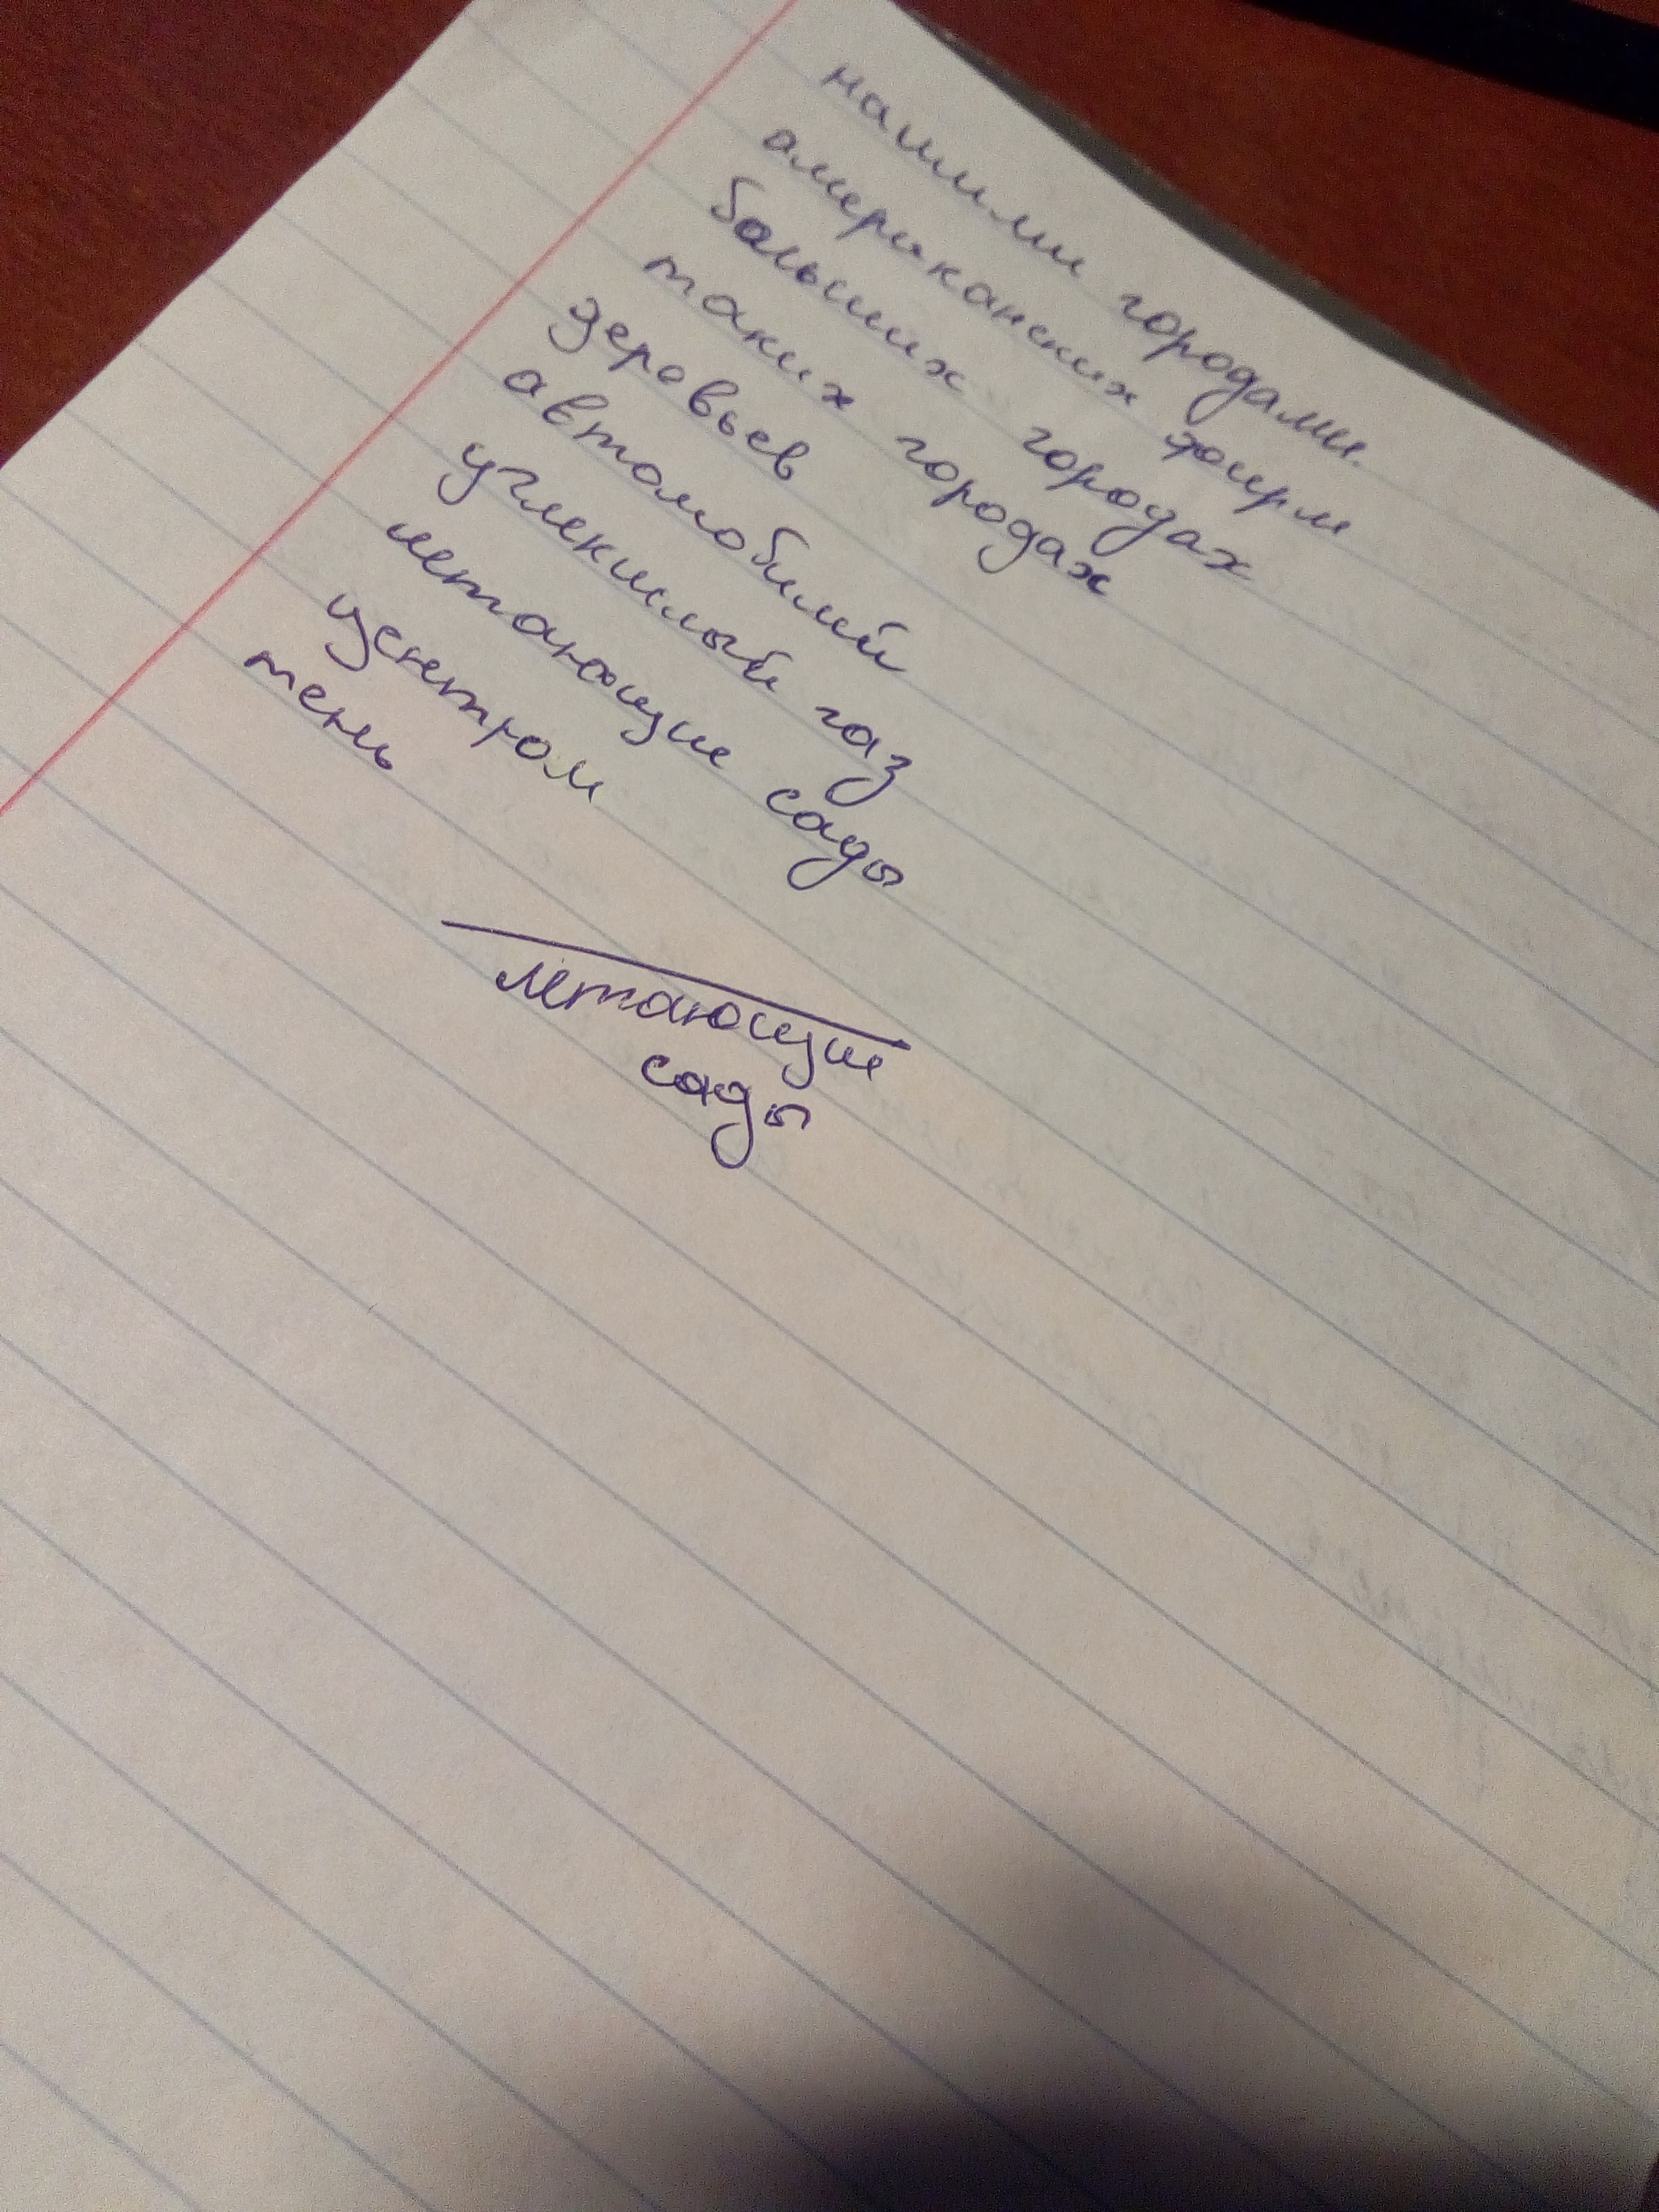 нашими городами.
американских фирм
больших городах
таких городах
деревьев
автомобилий
углекилый газ
летающие сады
центром
тень
летающие
сады